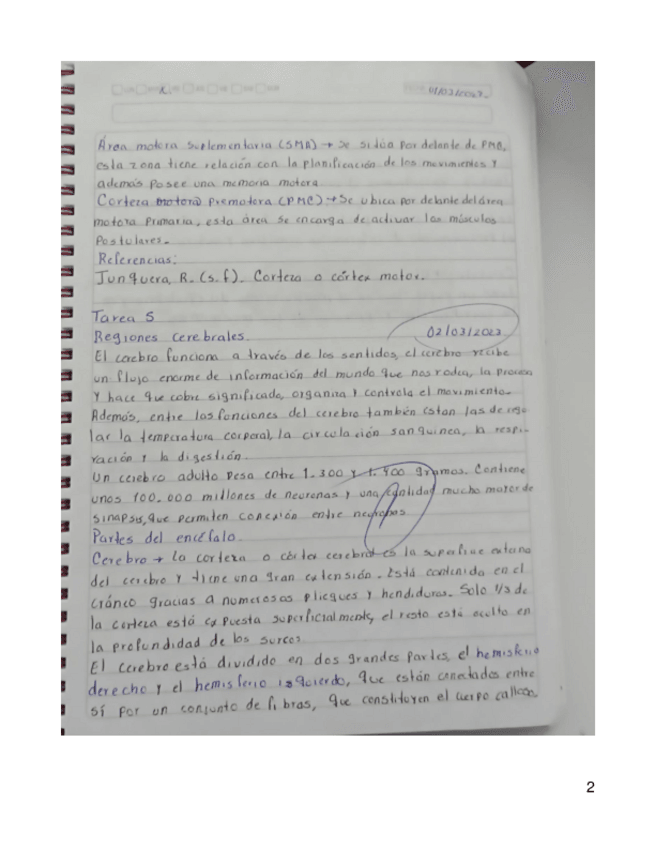 01/03/2023.
Área motora suplementaria (SMA) → Se sitúa por delante de PMA,
esta zona tiene relación con la planificación de los movimientos y
además posee una memoria motora
Corteza motora Premotora (PMC) → Se ubica por delante del área
motora primaria, esta área se encarga de activar los músculos
Posturales.
Referencias:
Junquera, R. (s.f). Corteza o córtex motor.
Tarea 5
02/03/2023
Regiones cerebrales.
El cerebro funciona a través de los sentidos, el cerebro recibe
un flujo enorme de información del mundo que nos rodea, la procesa
y hace que cobre significado, organiza y controla el movimiento.
Además, entre las funciones del cerebro también estan las de regu
lar la temperatura corporal, la circulación sanguinea, la respi-
ración y la digestión.
Un cerebro adulto pesa entre 1.300 y 1.400 gramos. Contiene
unos 100.000 millones de neuronas y una cantidad mucho mayor de
sinapsis, que permiten conexión entre neuronas
Partes del encéfalo.
Cerebro → La corteza o córtex cerebral es la superficie externa
del cerebro y tiene una gran extensión. Está contenida en el
cráneo gracias a numerosos pliegues y hendiduras. Solo 1/3 de
la corteza está expuesta superficialmente, el resto está oculto en
la profundidad de los surcos
El cerebro está dividido en dos grandes partes, el hemisferio
derecho y el hemisferio izquierdo, que están conectados entre
sí por un conjunto de fibras, que constituyen el cuerpo calloso,
2